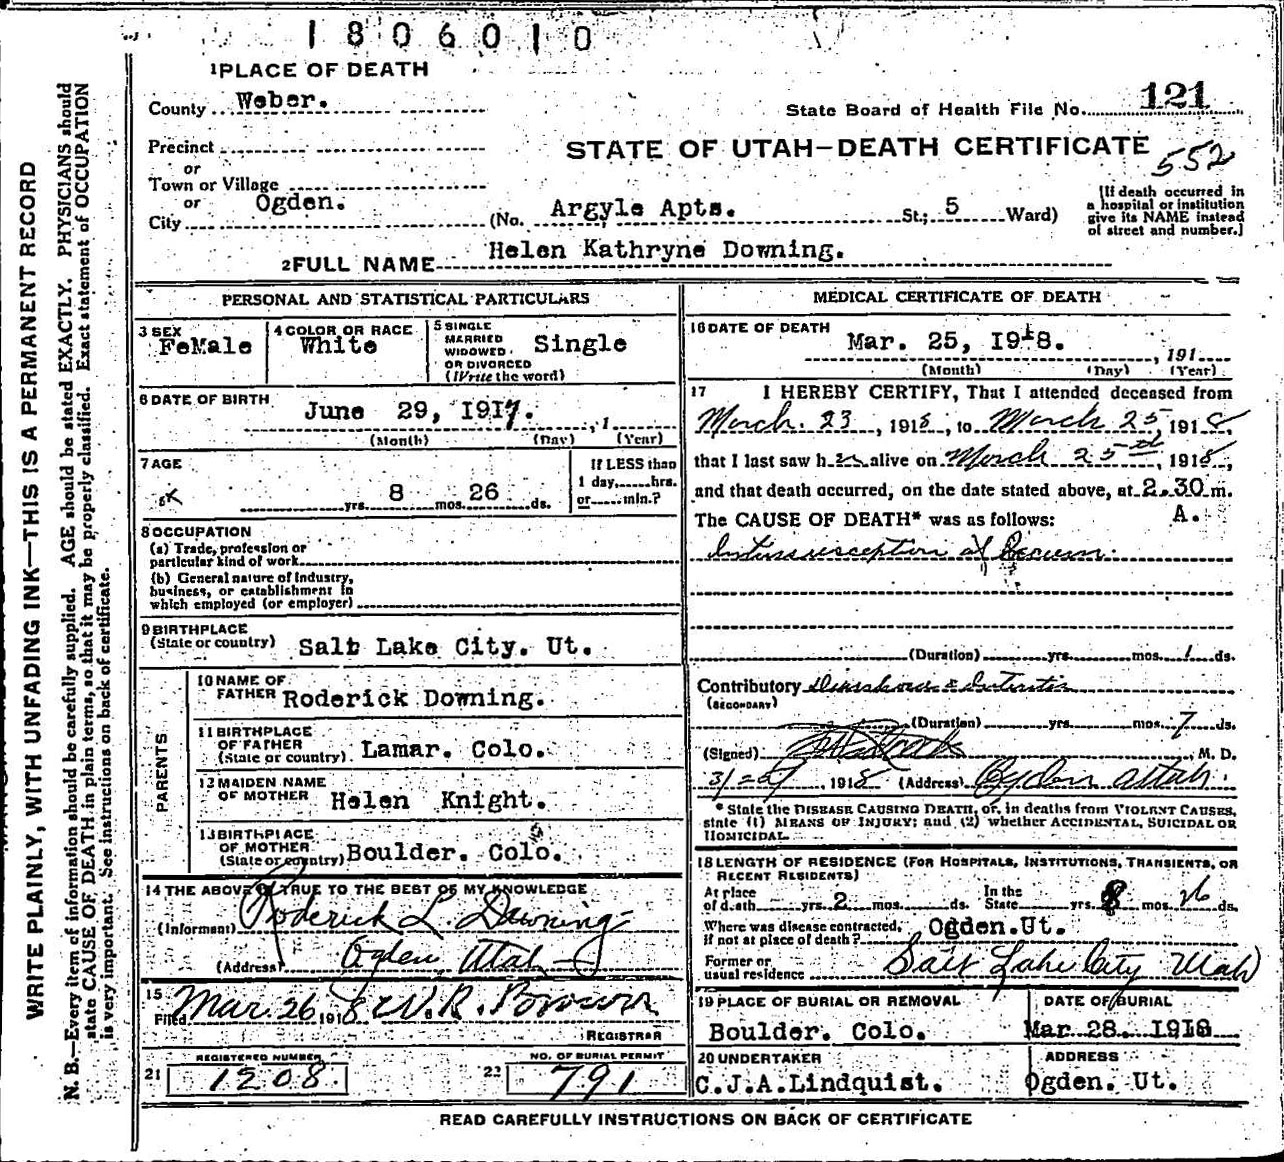 1806010
1 PLACE OF DEATH
County Weber.
State Board of Health File No. 121
Precinct
or
Town or Village
or
City Ogden.
STATE OF UTAH—DEATH CERTIFICATE
552
(No. Argyle Apts. St.; 5 Ward)
[If death occurred in
a hospital or institution
give its NAME instead
of street and number.]
2 FULL NAME Helen Kathryne Downing.
PERSONAL AND STATISTICAL PARTICULARS
3 SEX
FeMale
4 COLOR OR RACE
White
5 SINGLE
MARRIED
WIDOWED
OR DIVORCED
(Write the word)
Single
6 DATE OF BIRTH
June 29, 1917. , 1
(Month) (Day) (Year)
7 AGE
yrs. 8 mos. 26 ds.
If LESS than
1 day, hrs.
or min.?
8 OCCUPATION
(a) Trade, profession or
particular kind of work
(b) General nature of industry,
business, or establishment in
which employed (or employer)
9 BIRTHPLACE
(State or country) Salt Lake City. Ut.
PARENTS
10 NAME OF
FATHER Roderick Downing.
11 BIRTHPLACE
OF FATHER
(State or country) Lamar. Colo.
12 MAIDEN NAME
OF MOTHER Helen Knight.
13 BIRTHPLACE
OF MOTHER
(State or country) Boulder. Colo.
14 THE ABOVE IS TRUE TO THE BEST OF MY KNOWLEDGE
(Informant) Roderick L. Downing
(Address) Ogden, Utah
15
Filed Mar. 26 1918 W. R. Brown
REGISTRAR
REGISTERED NUMBER
21 1208
NO. OF BURIAL PERMIT
22 791
MEDICAL CERTIFICATE OF DEATH
16 DATE OF DEATH
Mar. 25, 1918. , 191
(Month) (Day) (Year)
17 I HEREBY CERTIFY, That I attended deceased from
March 23, 1918, to March 25, 1918,
that I last saw her alive on March 25th, 1918,
and that death occurred, on the date stated above, at 2.30 m.
A.
The CAUSE OF DEATH* was as follows:
Intussusception of Cecum
(Duration) yrs. mos. 1 ds.
Contributory
(SECONDARY)
(Duration) yrs. mos. 7 ds.
(Signed) , M. D.
, 1918 (Address) Ogden Utah.
* State the DISEASE CAUSING DEATH, or, in deaths from VIOLENT CAUSES,
state (1) MEANS OF INJURY; and (2) whether ACCIDENTAL, SUICIDAL OR
HOMICIDAL.
18 LENGTH OF RESIDENCE (FOR HOSPITALS, INSTITUTIONS, TRANSIENTS, OR
RECENT RESIDENTS)
At place
of death yrs. 2 mos. ds.
In the
State yrs. 8 mos. 26 ds.
Where was disease contracted,
if not at place of death? Ogden.Ut.
Former or
usual residence Salt Lake City Utah
19 PLACE OF BURIAL OR REMOVAL
Boulder. Colo.
DATE OF BURIAL
Mar 28. 1918
20 UNDERTAKER
C.J.A.Lindquist.
ADDRESS
Ogden. Ut.
READ CAREFULLY INSTRUCTIONS ON BACK OF CERTIFICATE
WRITE PLAINLY, WITH UNFADING INK—THIS IS A PERMANENT RECORD
N. B.—Every item of information should be carefully supplied. AGE should be stated EXACTLY. PHYSICIANS should
state CAUSE OF DEATH in plain terms, so that it may be properly classified. Exact statement of OCCUPATION
is very important. See instructions on back of certificate.